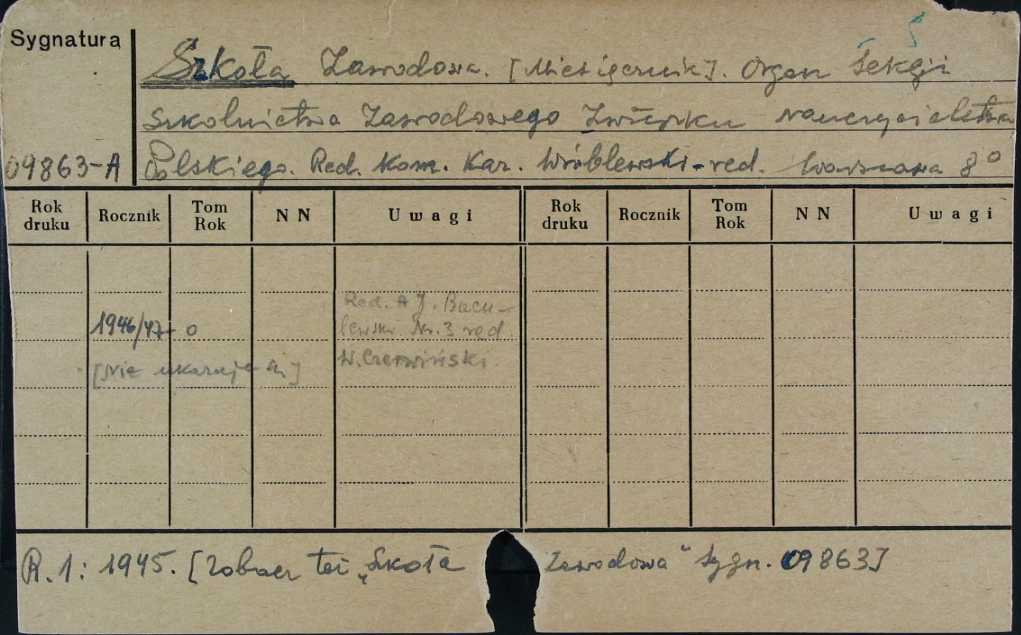 Sygnatura
Szkoła Zawodowa. [Miesięcznik]. Organ Sekcji
Szkolnictwa Zawodowego Związku Nauczycielstwa
09863-A Polskiego. Red. Kom. Kar. Wróblewski-red. Warszawa 8°
Rok druku Rocznik Tom Rok NN Uwagi Rok druku Rocznik Tom Rok NN Uwagi
Red. A J. Bacu-
1946/47- 0 lewski. Nr. 3 red.
[Nie ukazuje się] W. Czerwiński.
R. 1: 1945. [Zobacz też „Szkoła Zawodowa" Sygn. 09863]